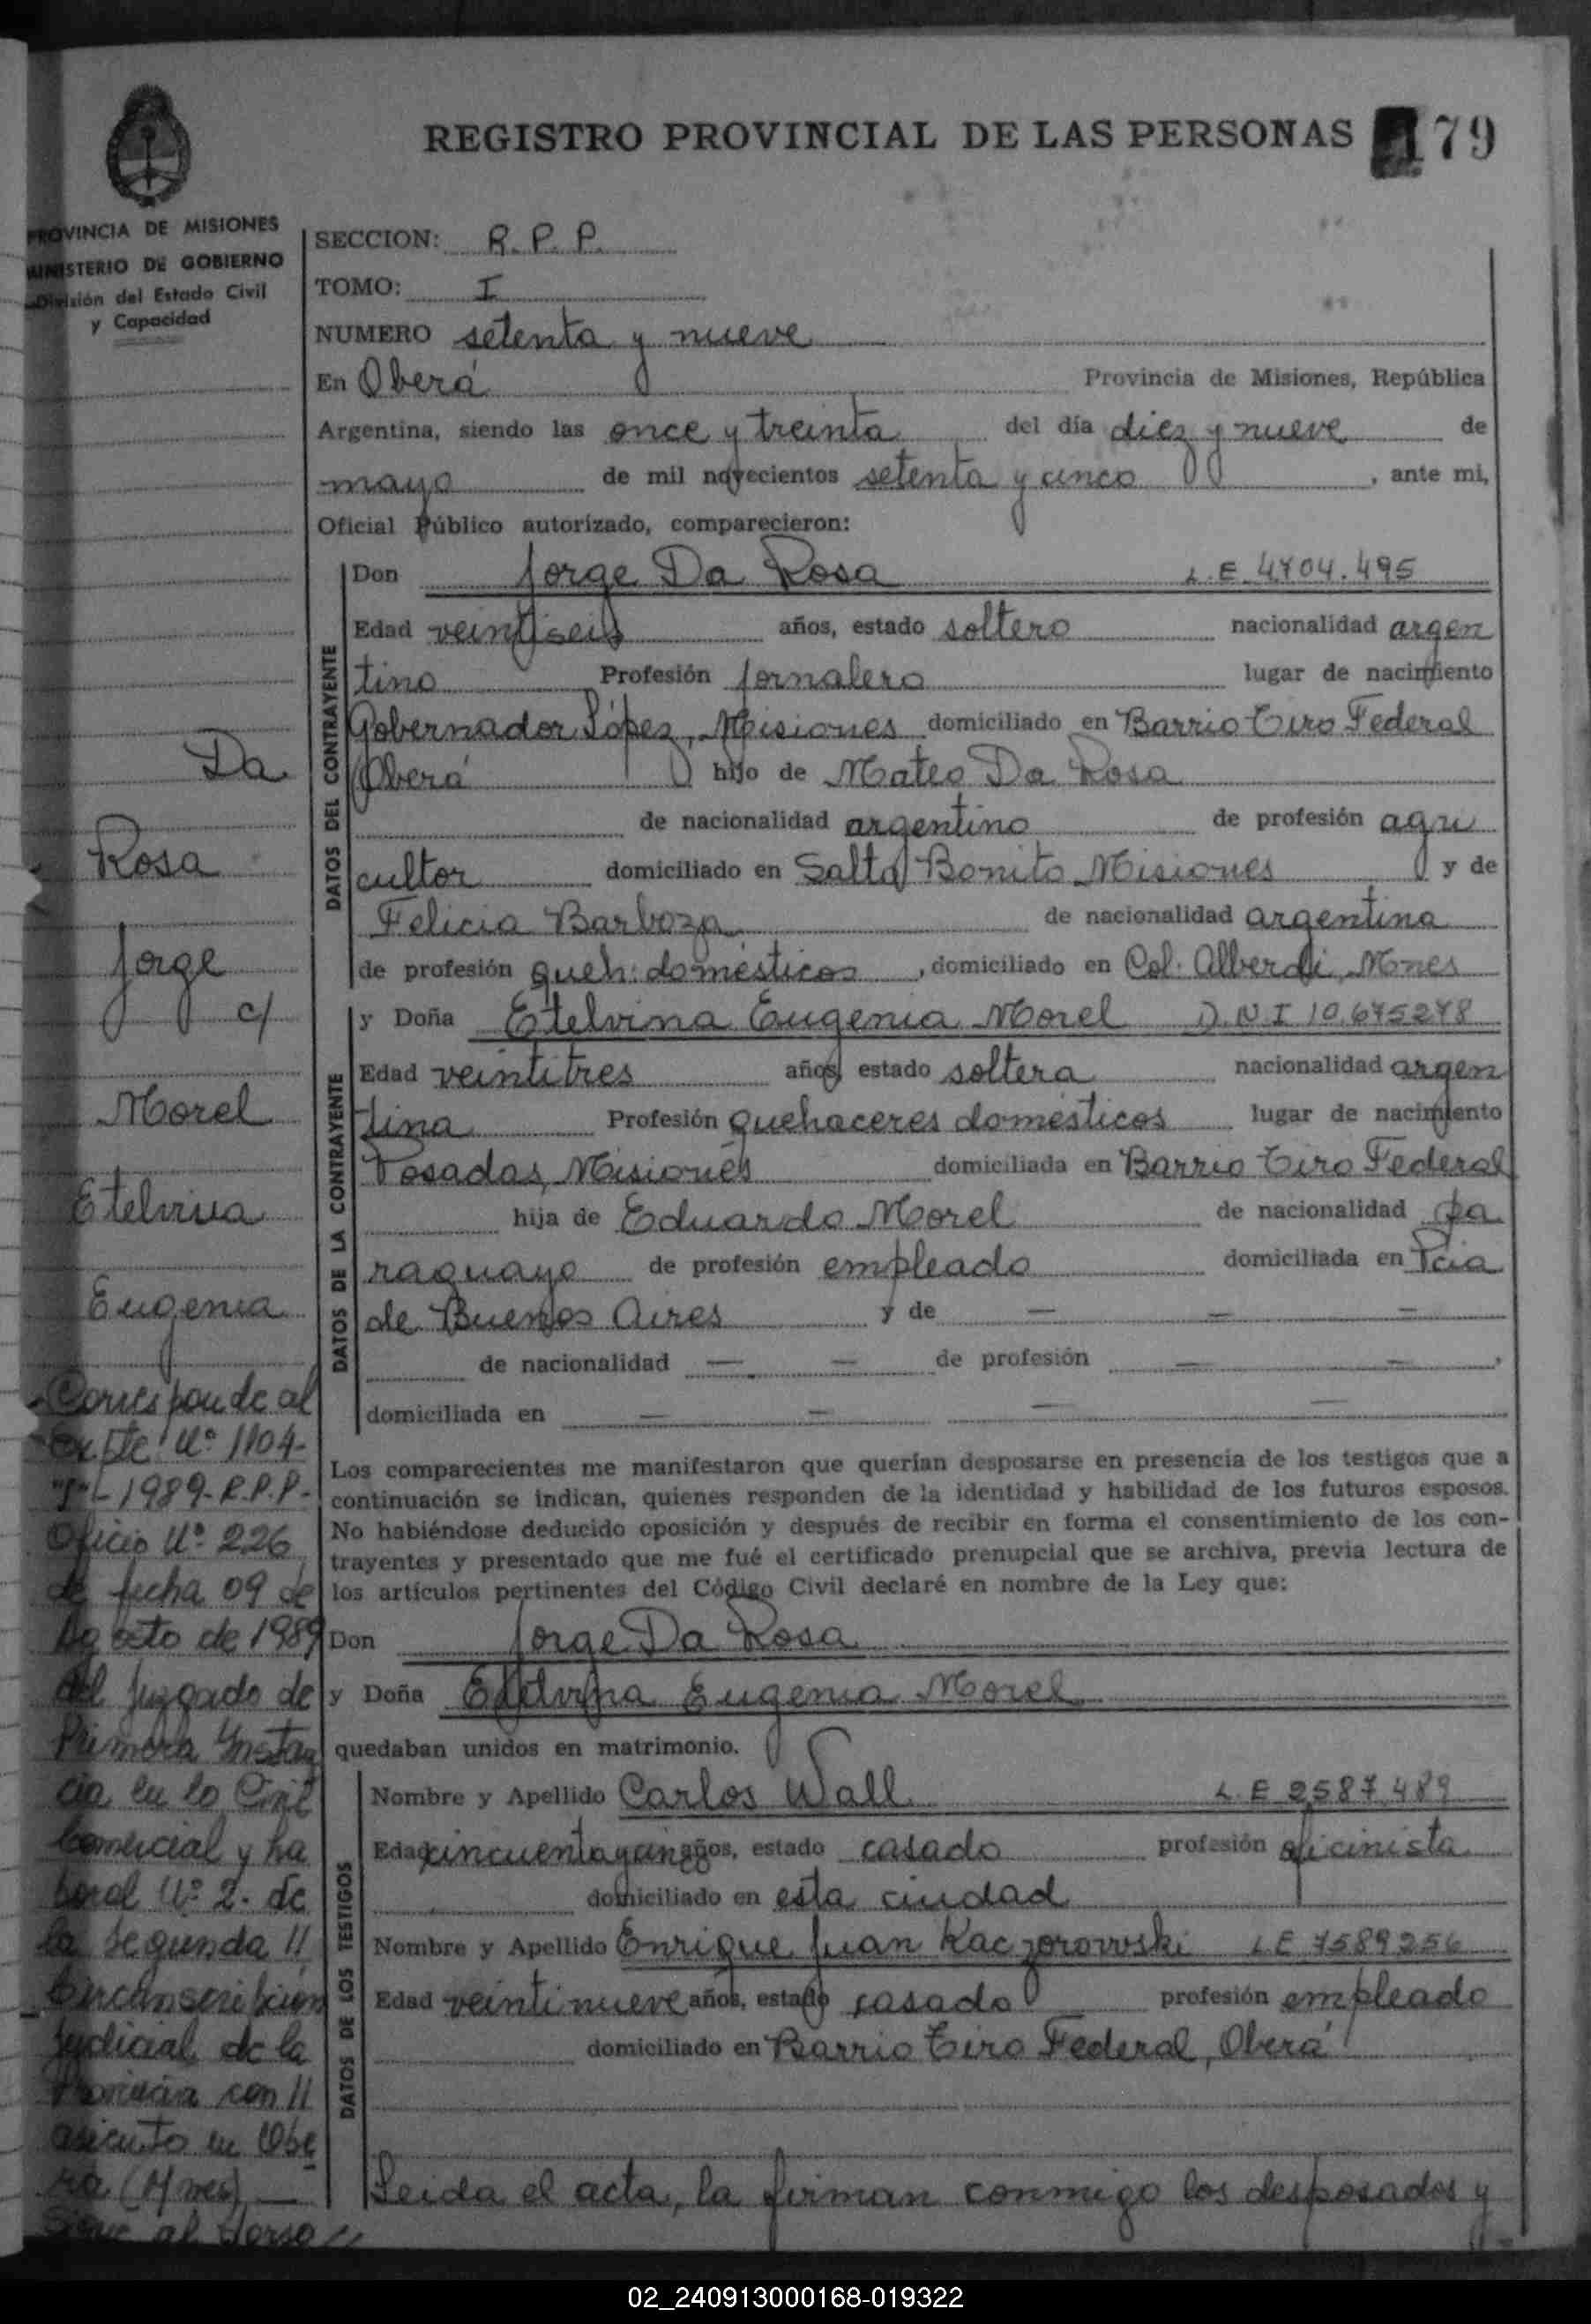 REGISTRO PROVINCIAL DE LAS PERSONAS 179
PROVINCIA DE MISIONES
MINISTERIO DE GOBIERNO
División del Estado Civil
y Capacidad
SECCION: R. P. P.
TOMO: I
NUMERO setenta y nueve
En Oberá Provincia de Misiones, República
Argentina, siendo las once y treinta del día diez y nueve de
mayo de mil novecientos setenta y cinco, ante mi,
Oficial Público autorizado, comparecieron:
DATOS DEL CONTRAYENTE
Don Jorge Da Rosa L.E. 4704.495
Edad veintiseis años, estado soltero nacionalidad argen
tino Profesión jornalero lugar de nacimiento
Gobernador López, Misiones domiciliado en Barrio Tiro Federal
Oberá hijo de Mateo Da Rosa
de nacionalidad argentino de profesión agri
cultor domiciliado en Salto Bonito Misiones y de
Felicia Barboza de nacionalidad argentina
de profesión queh. domésticos, domiciliado en Col. Alberdi, Mnes
DATOS DE LA CONTRAYENTE
y Doña Etelvina Eugenia Morel D.N.I 10.675278
Edad veintitres años, estado soltera nacionalidad argen
tina Profesión quehaceres domésticos lugar de nacimiento
Posadas, Misiones domiciliada en Barrio Tiro Federal
hija de Eduardo Morel de nacionalidad pa
raguayo de profesión empleado domiciliada en Pcia
de Buenos Aires y de — — —
de nacionalidad — — de profesión — —,
domiciliada en — — — —
Los comparecientes me manifestaron que querían desposarse en presencia de los testigos que a
continuación se indican, quienes responden de la identidad y habilidad de los futuros esposos.
No habiéndose deducido oposición y después de recibir en forma el consentimiento de los con-
trayentes y presentado que me fué el certificado prenupcial que se archiva, previa lectura de
los artículos pertinentes del Código Civil declaré en nombre de la Ley que:
Don Jorge Da Rosa
y Doña Etelvina Eugenia Morel
quedaban unidos en matrimonio.
DATOS DE LOS TESTIGOS
Nombre y Apellido Carlos Wall L.E 2587.489
Edad cincuenta y cin años, estado casado profesión oficinista
domiciliado en esta ciudad
Nombre y Apellido Enrique Juan Kaczorowski L.E 7589256
Edad veintinueve años, estado casado profesión empleado
domiciliado en Barrio Tiro Federal, Oberá
Leida el acta, la firman conmigo los desposados y
Da
Rosa
Jorge
c/
Morel
Etelvina
Eugenia
Corresponde al
Expte Nº 1104-
1989-R.P.P.-
Oficio Nº 226
de fecha 09 de
Agosto de 1989
del Juzgado de
Primera Instan
cia en lo Civil
Comercial y La
boral Nº 2. de
la Segunda //
Circunscripción
Judicial de la
Provincia con //
asiento en Obe
rá (Mnes) —
Sigue al dorso //
02_240913000168-019322